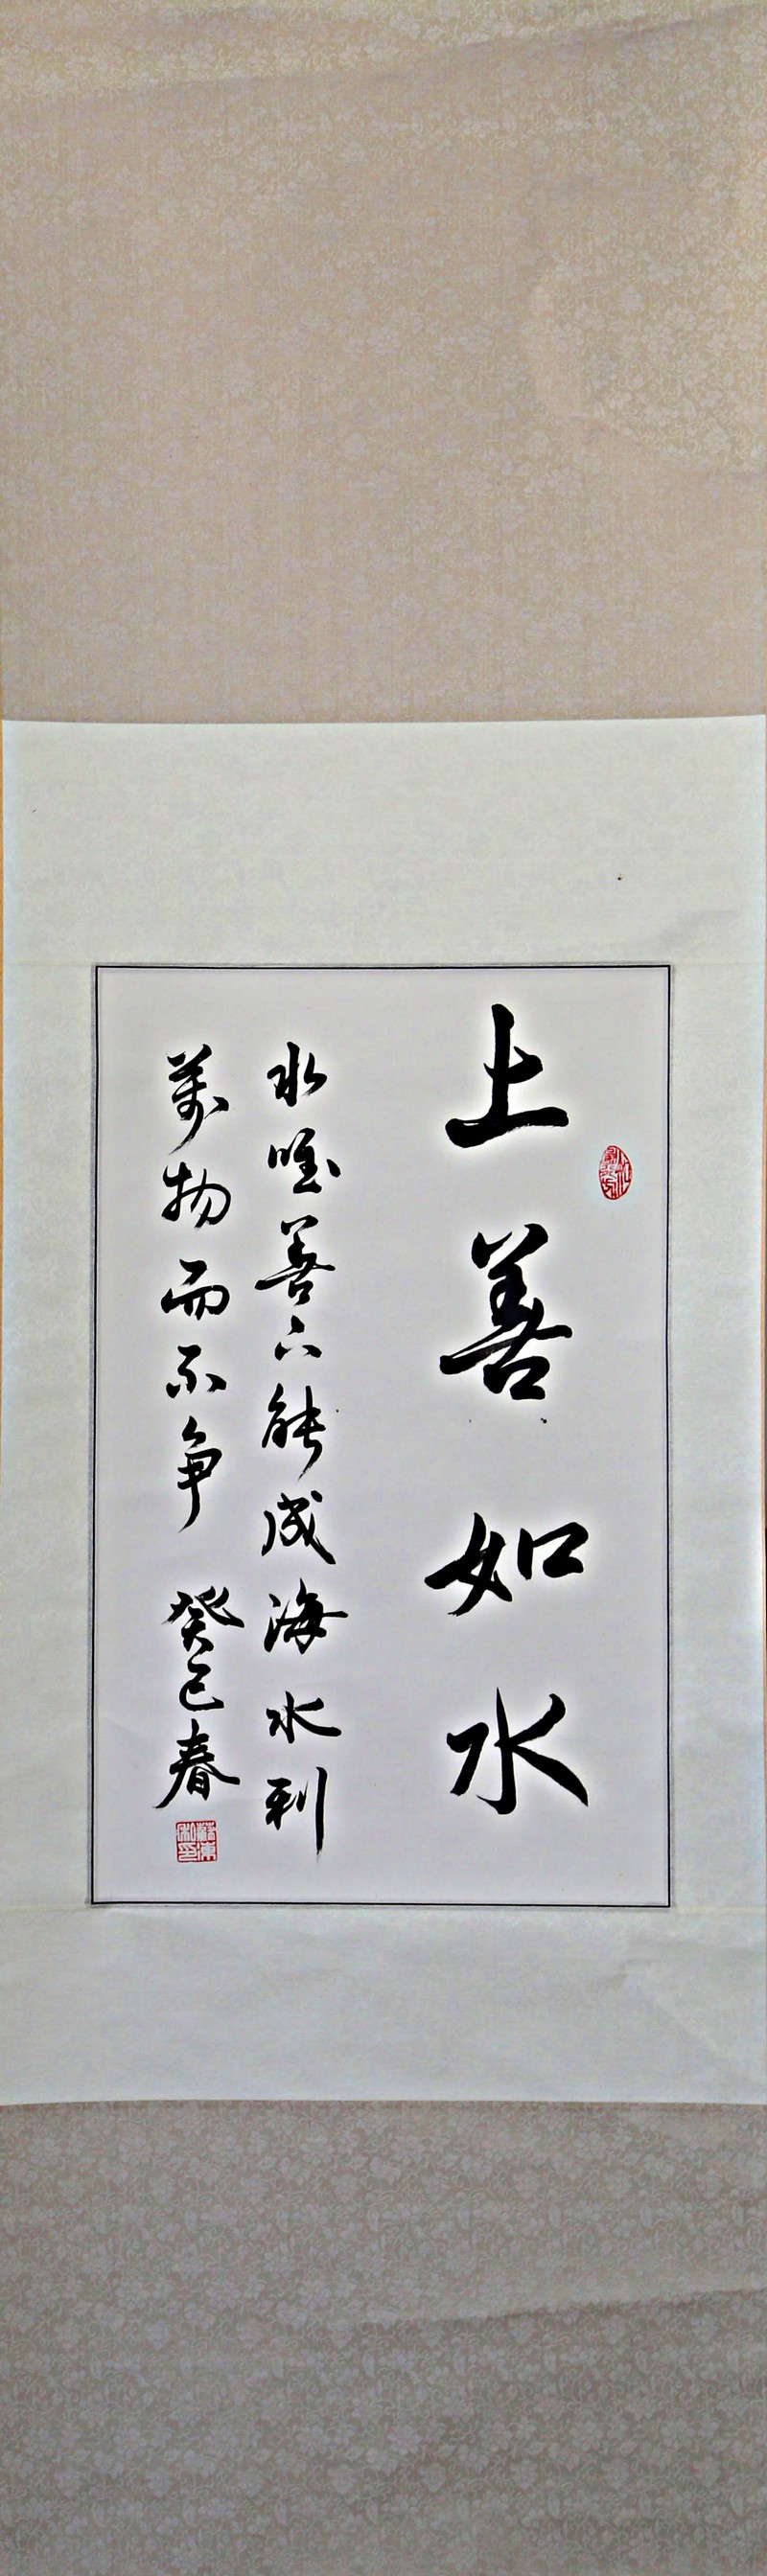 上善如水
水唯善下能成海水利
萬物而不争 癸巳春